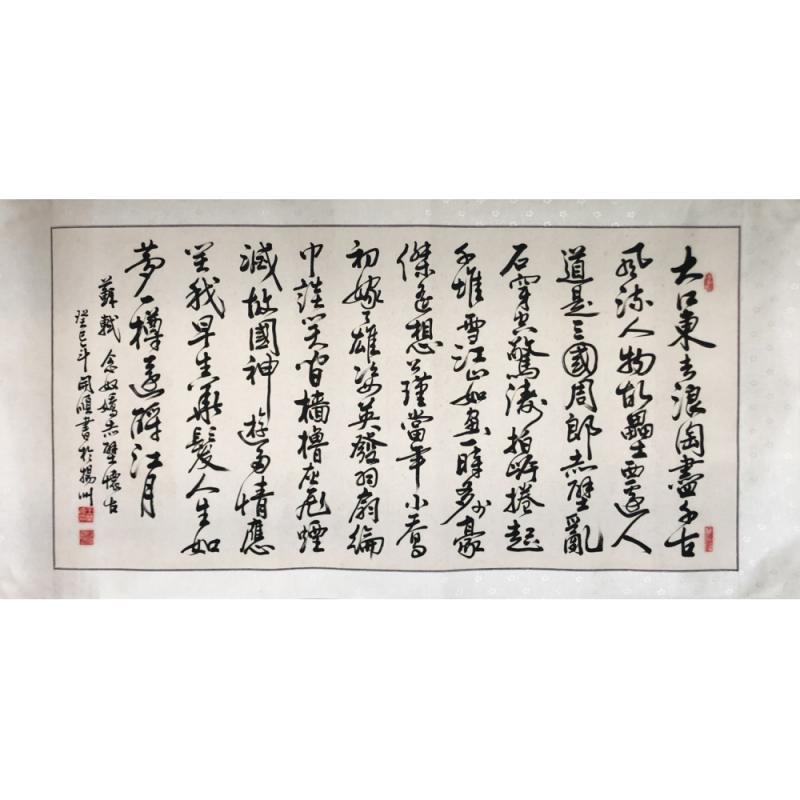 大江東去浪淘盡千古
風流人物故壘西邊人
道是三國周郎赤壁亂
石穿空驚濤拍岸捲起
千堆雪江山如畫一時多少豪
傑遙想公瑾當年小喬
初嫁了雄姿英發羽扇綸
巾談笑間檣櫓灰飛煙
滅故國神遊多情應
笑我早生華髮人生如
夢一樽還酹江月
蘇軾 念奴嬌赤壁懷古
癸巳年 順書於揚州